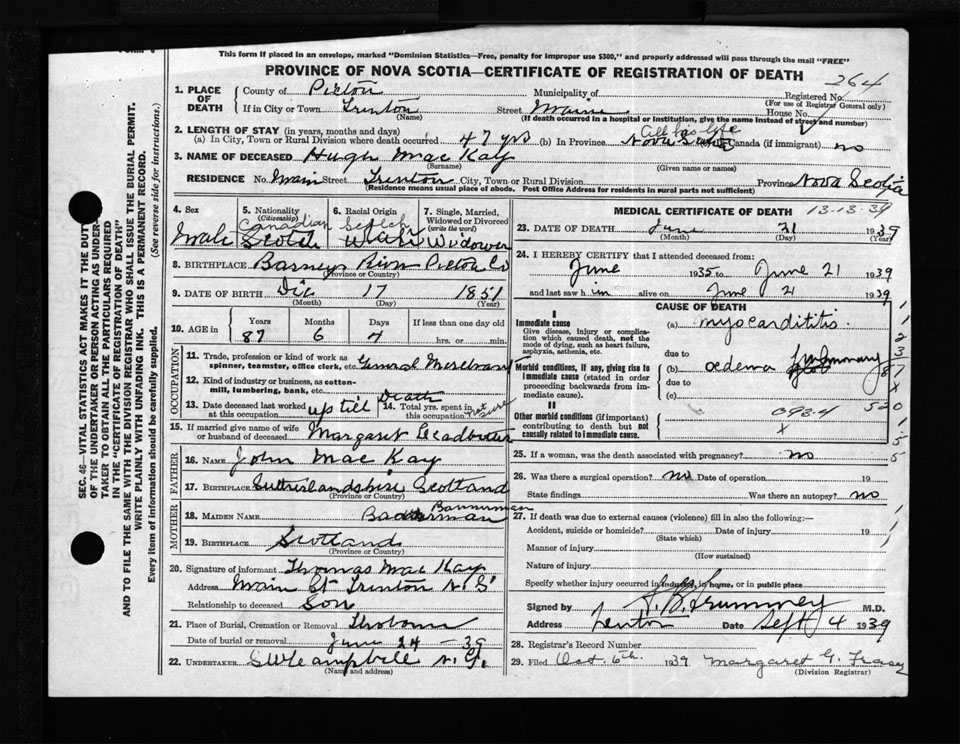 This form if placed in an envelope, marked "Dominion Statistics—Free, penalty for improper use $300," and properly addressed will pass through the mail "FREE"
PROVINCE OF NOVA SCOTIA—CERTIFICATE OF REGISTRATION OF DEATH
264
1. PLACE OF DEATH
County of Pictou Municipality of Registered No.
(For use of Registrar General only)
If in City or Town Trenton Street Main House No.
(Name) (If death occurred in a hospital or institution, give the name instead of street and number)
2. LENGTH OF STAY (in years, months and days)
(a) In City, Town or Rural Division where death occurred 47 yrs (b) In Province All his life Nova Scotia Canada (if immigrant) no
3. NAME OF DECEASED Hugh MacKay
(Surname) (Given name or names)
RESIDENCE No. Main Street Trenton City, Town or Rural Division Province Nova Scotia
(Residence means usual place of abode. Post Office Address for residents in rural parts not sufficient)
4. Sex Male
5. Nationality (Citizenship) Canadian Scotch
6. Racial Origin Scotch White
7. Single, Married, Widowed or Divorced (write the word) Widower
8. BIRTHPLACE Barneys River Pictou Co
(Province or Country)
9. DATE OF BIRTH Dec 17 1851
(Month) (Day) (Year)
10. AGE in Years Months Days If less than one day old
87 6 7 hrs. or min.
OCCUPATION
11. Trade, profession or kind of work as spinner, teamster, office clerk, etc. General Merchant
12. Kind of industry or business, as cotton-mill, lumbering, bank, etc.
13. Date deceased last worked at this occupation up till Death
14. Total yrs. spent in this occupation not sure
15. If married give name of wife or husband of deceased Margaret Leadbetter
FATHER
16. NAME John MacKay
17. BIRTHPLACE Sutherlandshire Scotland
(Province or Country)
MOTHER
18. MAIDEN NAME Bannerman
19. BIRTHPLACE Scotland
(Province or Country)
20. Signature of informant Thomas MacKay
Address Main St Trenton N.S.
Relationship to deceased Son
21. Place of Burial, Cremation or Removal
Date of burial or removal June 24 —39
22. UNDERTAKER
(Name and Address)
MEDICAL CERTIFICATE OF DEATH 13-13-39
23. DATE OF DEATH June 21 1939
(Month) (Day) (Year)
24. I HEREBY CERTIFY that I attended deceased from:
June 1935 to June 21 1939
and last saw him alive on June 21 1939
CAUSE OF DEATH
I
Immediate cause
Give disease, injury or complication which caused death, not the mode of dying, such as heart failure, asphyxia, asthenia, etc.
(a) myocarditis
due to
Morbid conditions, if any, giving rise to immediate cause (stated in order proceeding backwards from immediate cause).
(b) oedema
due to
(c)
II
Other morbid conditions (if important) contributing to death but not causally related to immediate cause.
093.4
x
25. If a woman, was the death associated with pregnancy? no
26. Was there a surgical operation? no Date of operation 19
State findings Was there an autopsy? no
27. If death was due to external causes (violence) fill in also the following:—
Accident, suicide or homicide? Date of injury 19
(State which)
Manner of injury
(How sustained)
Nature of injury
Specify whether injury occurred in industry, in home, or in public place
Signed by M.D.
Address Trenton Date Sept 4 1939
28. Registrar's Record Number
29. Filed Oct. 6th 1939 Margaret G. Fraser
(Division Registrar)
SEC. 46—VITAL STATISTICS ACT MAKES IT THE DUTY OF THE UNDERTAKER OR PERSON ACTING AS UNDERTAKER TO OBTAIN ALL THE PARTICULARS REQUIRED IN THE "CERTIFICATE OF REGISTRATION OF DEATH" AND TO FILE THE SAME WITH THE DIVISION REGISTRAR WHO SHALL ISSUE THE BURIAL PERMIT.
WRITE PLAINLY WITH UNFADING INK. THIS IS A PERMANENT RECORD.
Every item of information should be carefully supplied. (See reverse side for instructions.)